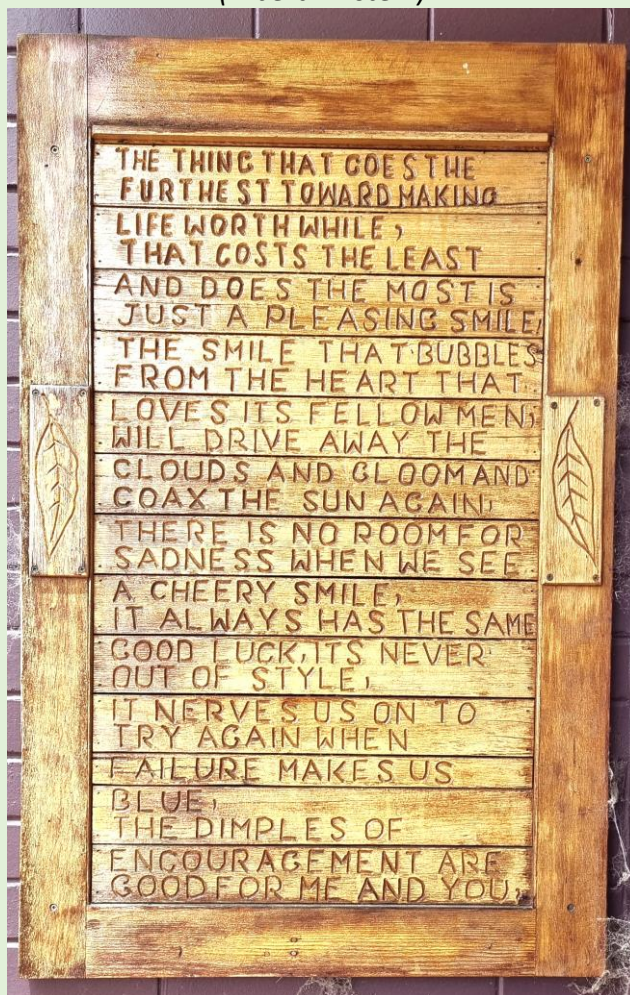 THE THING THAT GOES THE
FURTHEST TOWARD MAKING
LIFE WORTH WHILE,
THAT COSTS THE LEAST
AND DOES THE MOST IS
JUST A PLEASING SMILE,
THE SMILE THAT BUBBLES
FROM THE HEART THAT
LOVES ITS FELLOW MEN,
WILL DRIVE AWAY THE
CLOUDS AND GLOOM AND
COAX THE SUN AGAIN,
THERE IS NO ROOM FOR
SADNESS WHEN WE SEE
A CHEERY SMILE,
IT ALWAYS HAS THE SAME
GOOD LUCK, ITS NEVER
OUT OF STYLE,
IT NERVES US ON TO
TRY AGAIN WHEN
FAILURE MAKES US
BLUE,
THE DIMPLES OF
ENCOURAGEMENT ARE
GOOD FOR ME AND YOU,